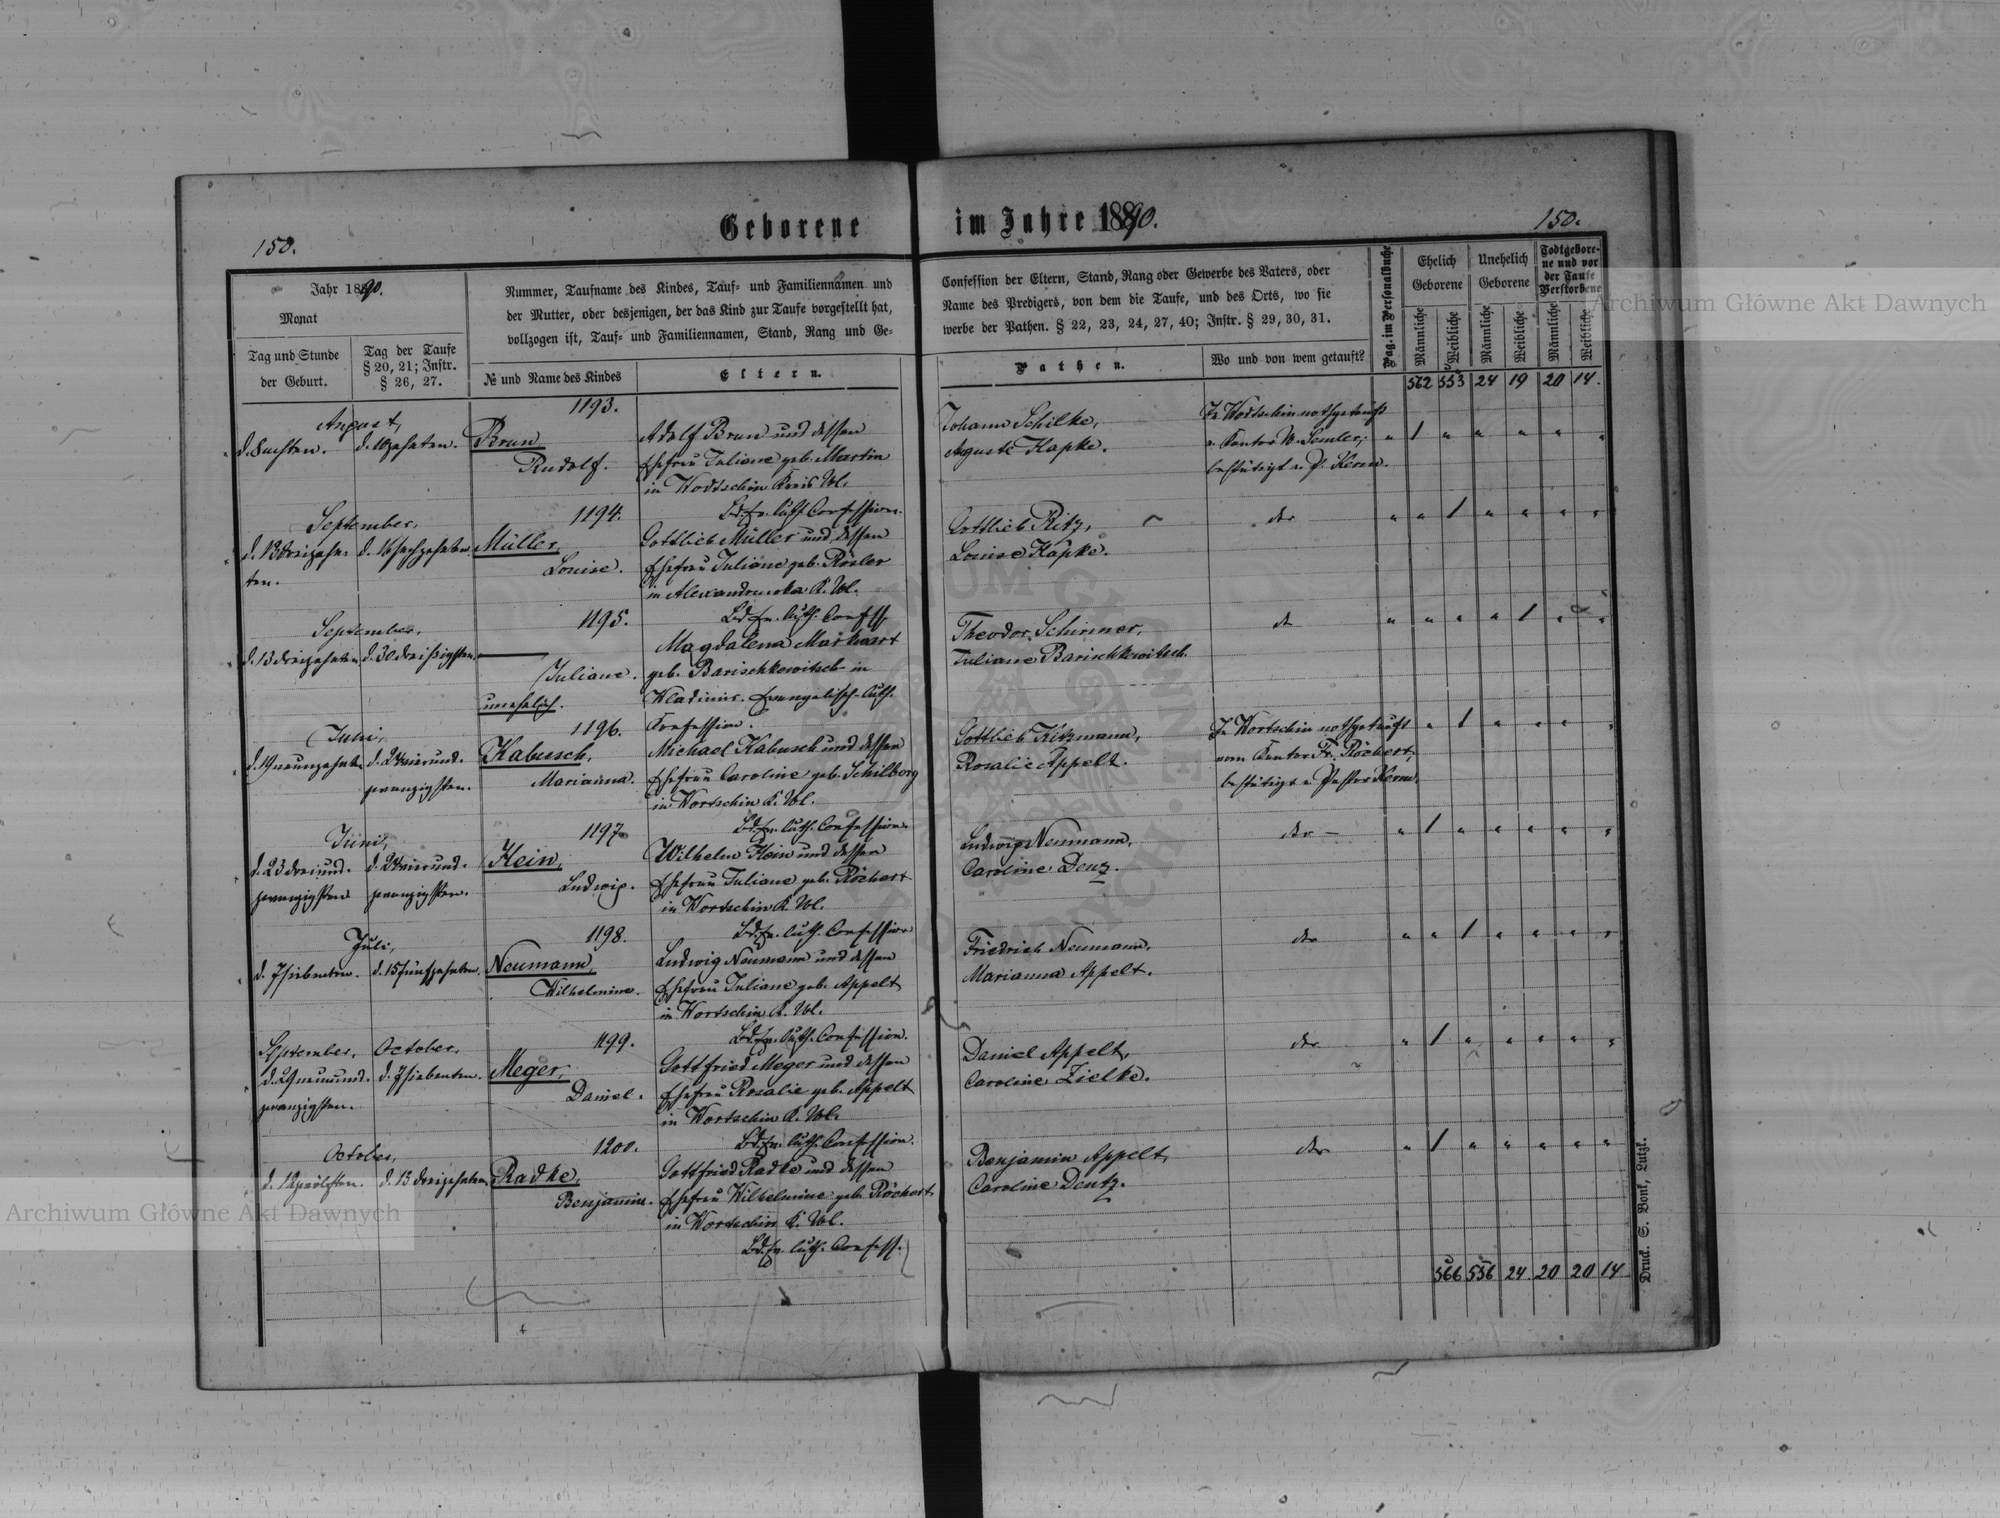 Geborene im Jahre 1890.
150.
150.
Jahr 1890.
Monat
Tag und Stunde
der Geburt.
Tag der Taufe
§ 20, 21; Instr.
§ 26, 27.
Nummer, Taufname des Kindes, Tauf- und Familiennamen und
der Mutter, oder desjenigen, der das Kind zur Taufe vorgestellt hat,
vollzogen ist, Tauf- und Familiennamen, Stand, Rang und Ge-
№ und Name des Kindes
Eltern.
Confession der Eltern, Stand, Rang oder Gewerbe des Vaters, oder
Name des Predigers, von dem die Taufe, und des Orts, wo sie
werbe der Pathen. § 22, 23, 24, 27, 40; Instr. § 29, 30, 31.
Pathen.
Wo und von wem getauft?
Pag. im Personalbuche
Ehelich
Geborene
Unehelich
Geborene
Todtgebore-
ne und vor
der Taufe
Verstorbene
Männliche
Weibliche
Männliche
Weibliche
Männliche
Weibliche
562 553 24 19 20 14.
August,
d. 8 achten. d. 10 zehnten.
1193.
Brun
Rudolf.
Adolf Brun und dessen
Ehefrau Juliane geb. Martin
in Wortschin Kreis Wl.
Bd. Ev. luth. Confession.
Johann Schilke,
Auguste Kapke.
In Wortschin nothgetauft
v. Kantor W. Semler,
bestätigt v. P. Kern.
September,
d. 13 dreizehn-
ten.
d. 16 sechzehnten
1194.
Müller,
Louise.
Gottlieb Müller und dessen
Ehefrau Juliane geb. Rösler
in Alexandrowka K. Wl.
Bd. Ev. luth. Confess.
Gottlieb Ritz,
Louise Kapke.
dto
September,
d. 13 dreizehnten d. 30 dreißigsten
1195.
Juliane.
unehelich.
Magdalena Markwart
geb. Barischkewitsch in
Wladimir. Evangelisch-luth.
Confession.
Theodor Schirmer,
Juliane Barischkewitsch.
dto
Juni,
d. 19 neunzehnten
d. 24 vierund-
zwanzigsten.
1196.
Kabusch,
Marianna.
Michael Kabusch und dessen
Ehefrau Caroline geb. Schilborg
in Wortschin K. Wl.
Bd. Ev. luth. Confession
Gottlieb Kitzmann,
Rosalie Appelt.
In Wortschin nothgetauft
vom Kantor Fr. Röchert,
bestätigt v. Pastor Kern.
Juni,
d. 23 dreiund-
zwanzigsten
d. 24 vierund-
zwanzigsten.
1197
Hein,
Ludwig.
Wilhelm Hein und dessen
Ehefrau Juliane geb. Röchert
in Wortschin K. Wl.
Bd. Ev. luth. Confession
Ludwig Neumann,
Caroline Denz.
dto
Juli,
d. 7 siebenten. d. 15 fünfzehnten.
1198.
Neumann,
Wilhelmine.
Ludwig Neumann und dessen
Ehefrau Juliane geb. Appelt
in Wortschin K. Wl.
Bd. Ev. luth. Confession.
Friedrich Neumann,
Marianna Appelt.
dto
September,
d. 29 neunund-
zwanzigsten.
October,
d. 7 siebenten.
1199.
Meger,
Daniel.
Gottfried Meger und dessen
Ehefrau Rosalie geb. Appelt
in Wortschin K. Wl.
Bd. Ev. luth. Confession.
Daniel Appelt,
Caroline Zielke.
dto
October,
d. 12 zwölften. d. 13 dreizehnten.
1200.
Radke,
Benjamin.
Gottfried Radke und dessen
Ehefrau Wilhelmine geb. Röchert
in Wortschin K. Wl.
Bd. Ev. luth. Confess.
Benjamin Appelt,
Caroline Dentz.
dto
566 556 24 20 20 14
Druck. S. Bonk, Lutzk.
Archiwum Główne Akt Dawnych
Archiwum Główne Akt Dawnych